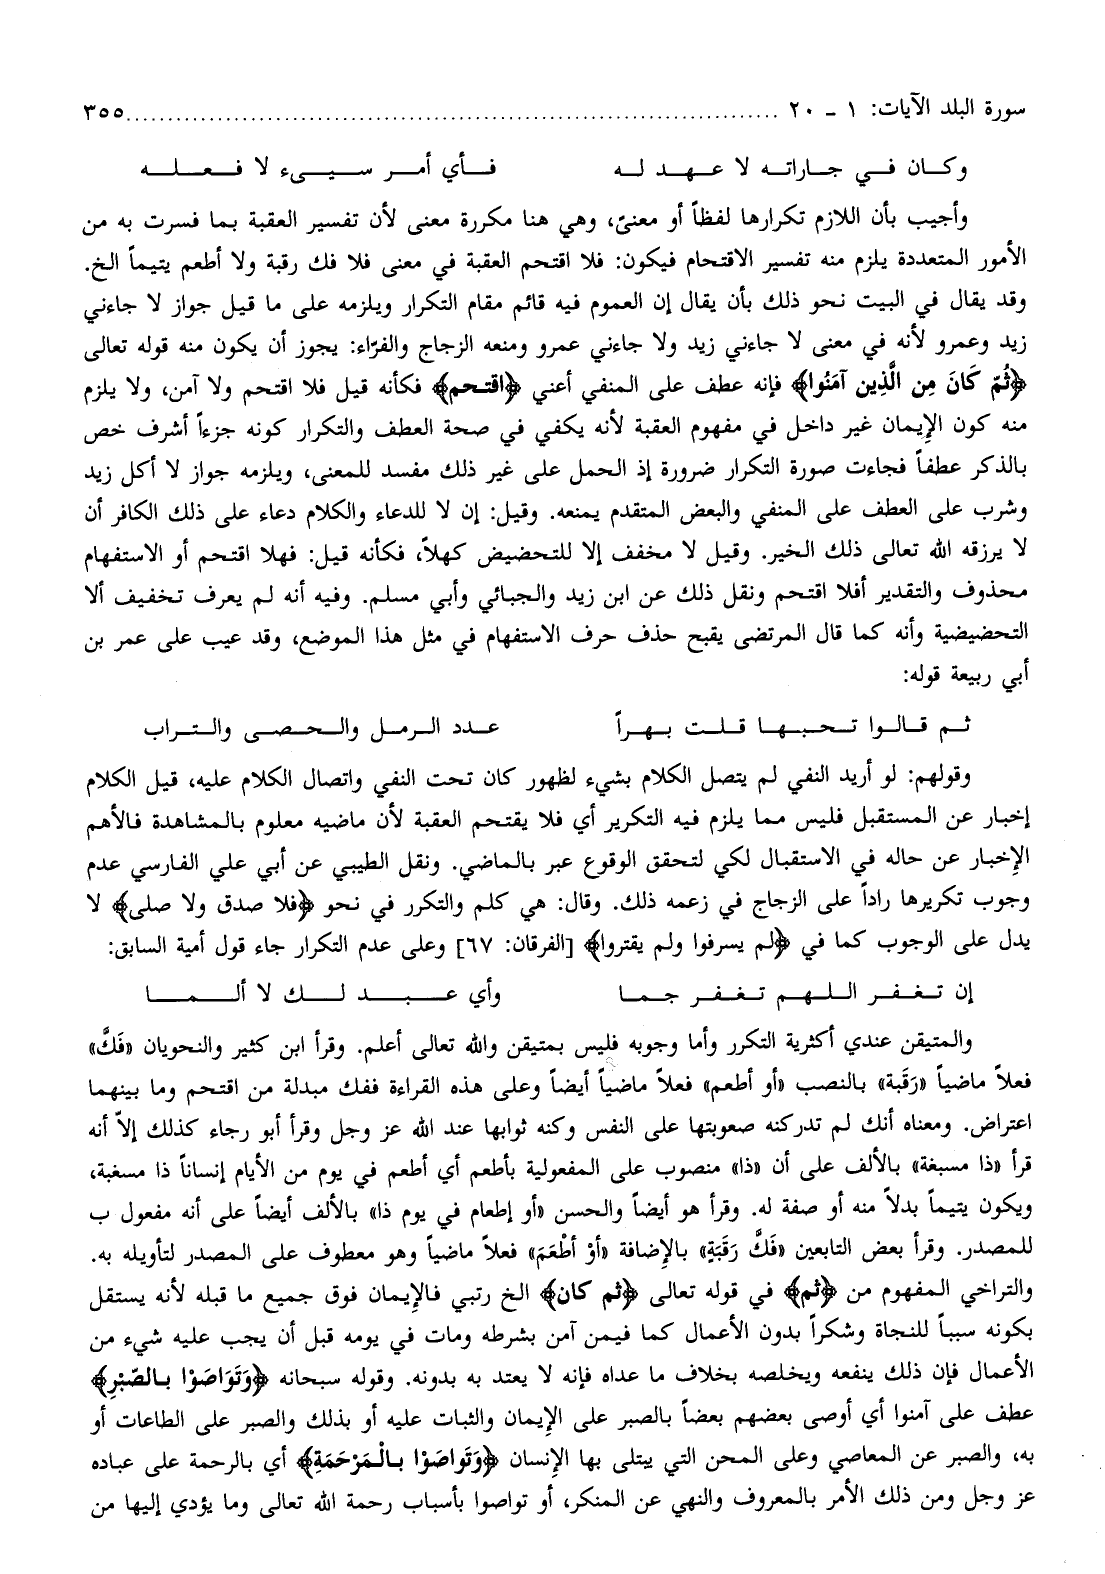 سورة البلد الآيات: ١ ـ ٢٠ ............................................................................ ٣٥٥
وكان في جاراته لا عهد له فأي أمر سيىء لا فعله
وأجيب بأن اللازم تكرارها لفظاً أو معنىً، وهي هنا مكررة معنى لأن تفسير العقبة بما فسرت به من
الأمور المتعددة يلزم منه تفسير الاقتحام فيكون: فلا اقتحم العقبة في معنى فلا فك رقبة ولا أطعم يتيماً الخ.
وقد يقال في البيت نحو ذلك بأن يقال إن العموم فيه قائم مقام التكرار ويلزمه على ما قيل جواز لا جاءني
زيد وعمرو لأنه في معنى لا جاءني زيد ولا جاءني عمرو ومنعه الزجاج والفرّاء: يجوز أن يكون منه قوله تعالى
﴿ثُمّ كَانَ مِن الَّذِين آمَنُوا﴾ فإنه عطف على المنفي أعني ﴿اقتحم﴾ فكأنه قيل فلا اقتحم ولا آمن، ولا يلزم
منه كون الإيمان غير داخل في مفهوم العقبة لأنه يكفي في صحة العطف والتكرار كونه جزءاً أشرف خص
بالذكر عطفاً فجاءت صورة التكرار ضرورة إذ الحمل على غير ذلك مفسد للمعنى، ويلزمه جواز لا أكل زيد
وشرب على العطف على المنفي والبعض المتقدم يمنعه. وقيل: إن لا للدعاء والكلام دعاء على ذلك الكافر أن
لا يرزقه الله تعالى ذلك الخير. وقيل لا مخفف إلا للتحضيض كهلاً، فكأنه قيل: فهلا اقتحم أو الاستفهام
محذوف والتقدير أفلا اقتحم ونقل ذلك عن ابن زيد والجبائي وأبي مسلم. وفيه أنه لم يعرف تخفيف ألا
التحضيضية وأنه كما قال المرتضى يقبح حذف حرف الاستفهام في مثل هذا الموضع، وقد عيب على عمر بن
أبي ربيعة قوله:
ثم قالوا تحبها قلت بهراً عدد الرمل والحصى والتراب
وقولهم: لو أريد النفي لم يتصل الكلام بشيء لظهور كان تحت النفي واتصال الكلام عليه، قيل الكلام
إخبار عن المستقبل فليس مما يلزم فيه التكرير أي فلا يقتحم العقبة لأن ماضيه معلوم بالمشاهدة فالأهم
الإخبار عن حاله في الاستقبال لكي لتحقق الوقوع عبر بالماضي. ونقل الطيبي عن أبي علي الفارسي عدم
وجوب تكريرها راداً على الزجاج في زعمه ذلك. وقال: هي كلم والتكرر في نحو ﴿فلا صدق ولا صلى﴾ لا
يدل على الوجوب كما في ﴿لم يسرفوا ولم يقتروا﴾ [الفرقان: ٦٧] وعلى عدم التكرار جاء قول أمية السابق:
إن تغفر اللهم تغفر جما وأي عبد لك لا ألما
والمتيقن عندي أكثرية التكرر وأما وجوبه فليس بمتيقن والله تعالى أعلم. وقرأ ابن كثير والنحويان «فَكَّ»
فعلاً ماضياً «رَقَبة» بالنصب «أو أطعم» فعلاً ماضياً أيضاً وعلى هذه القراءة ففك مبدلة من اقتحم وما بينهما
اعتراض. ومعناه أنك لم تدركنه صعوبتها على النفس وكنه ثوابها عند الله عز وجل وقرأ أبو رجاء كذلك إلاّ أنه
قرأ «ذا مسبغة» بالألف على أن «ذا» منصوب على المفعولية بأطعم أي أطعم في يوم من الأيام إنساناً ذا مسغبة،
ويكون يتيماً بدلاً منه أو صفة له. وقرأ هو أيضاً والحسن «أو إطعام في يوم ذا» بالألف أيضاً على أنه مفعول ب
للمصدر. وقرأ بعض التابعين «فَكَّ رَقَبَةٍ» بالإضافة «أوْ أطْعَمَ» فعلاً ماضياً وهو معطوف على المصدر لتأويله به.
والتراخي المفهوم من ﴿ثم﴾ في قوله تعالى ﴿ثم كان﴾ الخ رتبي فالإيمان فوق جميع ما قبله لأنه يستقل
بكونه سبباً للنجاة وشكراً بدون الأعمال كما فيمن آمن بشرطه ومات في يومه قبل أن يجب عليه شيء من
الأعمال فإن ذلك ينفعه ويخلصه بخلاف ما عداه فإنه لا يعتد به بدونه. وقوله سبحانه ﴿وَتَوَاصَوْا بالصّبْرِ﴾
عطف على آمنوا أي أوصى بعضهم بعضاً بالصبر على الإيمان والثبات عليه أو بذلك والصبر على الطاعات أو
به، والصبر عن المعاصي وعلى المحن التي يبتلى بها الإنسان ﴿وَتَواصَوْا بالْمَرْحَمَةِ﴾ أي بالرحمة على عباده
عز وجل ومن ذلك الأمر بالمعروف والنهي عن المنكر، أو تواصوا بأسباب رحمة الله تعالى وما يؤدي إليها من